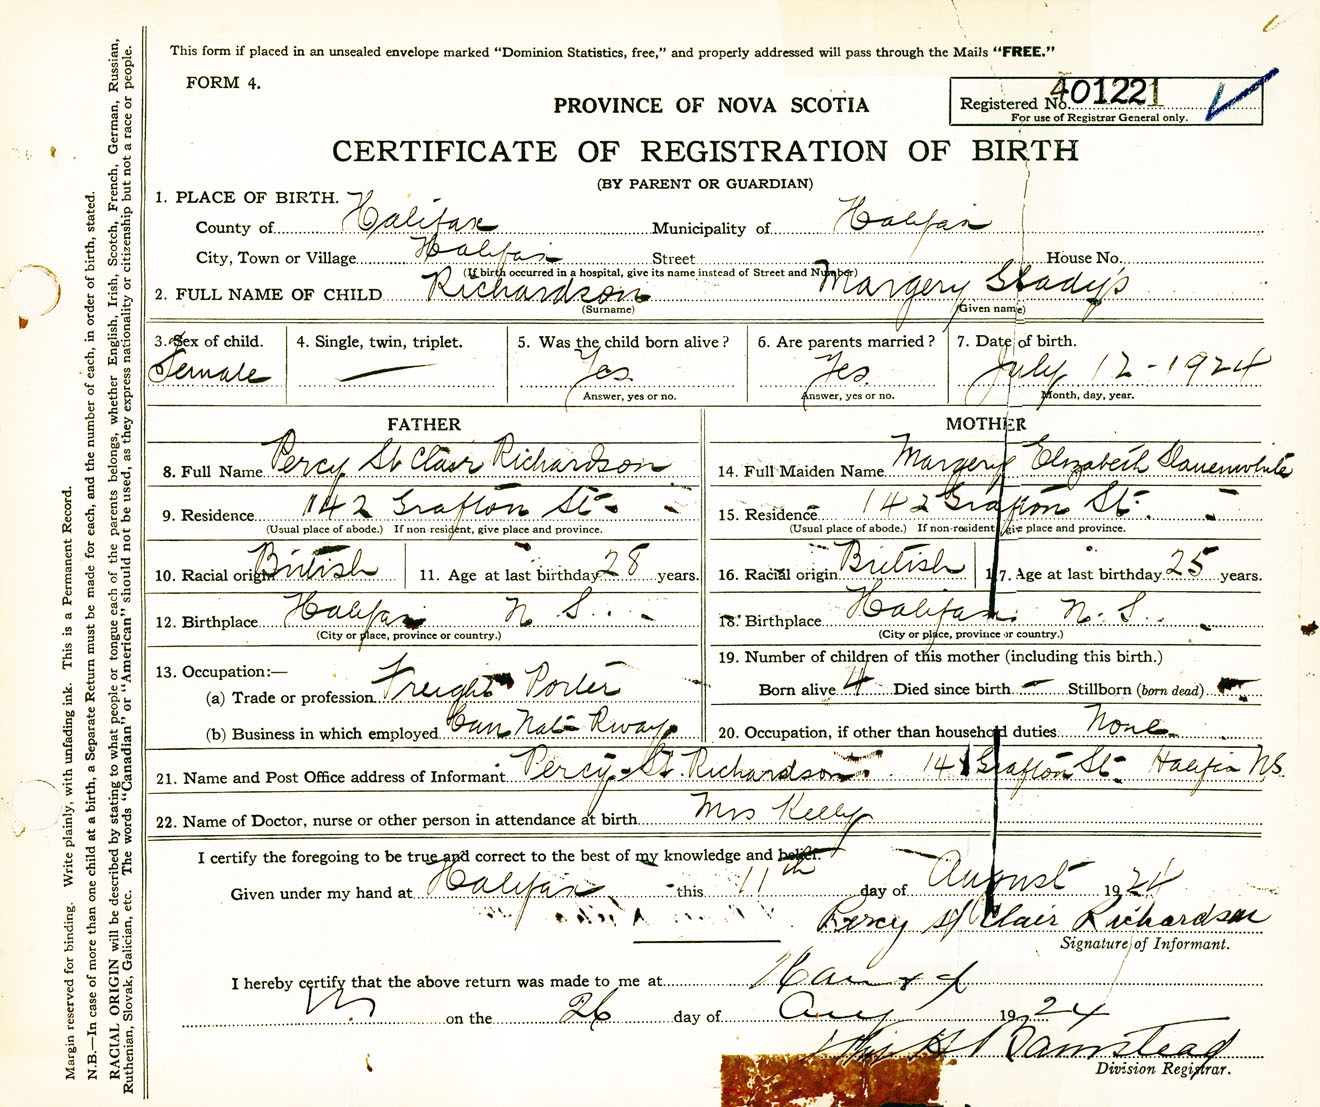 This form if placed in an unsealed envelope marked "Dominion Statistics, free," and properly addressed will pass through the Mails "FREE."
FORM 4.
Registered No. 401221
For use of Registrar General only.
PROVINCE OF NOVA SCOTIA
CERTIFICATE OF REGISTRATION OF BIRTH
(BY PARENT OR GUARDIAN)
1. PLACE OF BIRTH.
County of Halifax Municipality of Halifax
City, Town or Village Halifax Street House No.
(If birth occurred in a hospital, give its name instead of Street and Number)
2. FULL NAME OF CHILD Richardson Margery Gladys
(Surname) (Given name)
3. Sex of child. 4. Single, twin, triplet. 5. Was the child born alive? 6. Are parents married? 7. Date of birth.
Female Yes Yes July 12-1924
Answer, yes or no. Answer, yes or no. Month, day, year.
FATHER
8. Full Name Percy St Clair Richardson
9. Residence 142 Grafton St.
(Usual place of abode.) If non-resident, give place and province.
10. Racial origin British 11. Age at last birthday 28 years.
12. Birthplace Halifax N.S.
(City or place, province or country.)
13. Occupation:—
(a) Trade or profession Freight Porter
(b) Business in which employed Can Nat Rway
MOTHER
14. Full Maiden Name Margery Elizabeth Dauenwhite
15. Residence 142 Grafton St.
(Usual place of abode.) If non-resident, give place and province.
16. Racial origin British 17. Age at last birthday 25 years.
18. Birthplace Halifax N.S.
(City or place, province or country.)
19. Number of children of this mother (including this birth.)
Born alive 4 Died since birth – Stillborn (born dead)
20. Occupation, if other than household duties None
21. Name and Post Office address of Informant Percy St. Richardson 14 Grafton St. Halifax NS.
22. Name of Doctor, nurse or other person in attendance at birth Mrs Kelly
I certify the foregoing to be true and correct to the best of my knowledge and belief.
Given under my hand at Halifax this 11th day of August 1924
Percy St Clair Richardson
Signature of Informant.
I hereby certify that the above return was made to me at
on the 26 day of Aug 1924
Division Registrar.
Margin reserved for binding. Write plainly, with unfading ink. This is a Permanent Record.
N.B.—In case of more than one child at a birth, a Separate Return must be made for each, and the number of each, in order of birth, stated.
RACIAL ORIGIN will be described by stating to what people or tongue each of the parents belongs, whether English, Irish, Scotch, French, German, Russian,
Ruthenian, Slovak, Galician, etc. The words "Canadian" or "American" should not be used, as they express nationality or citizenship but not a race or people.